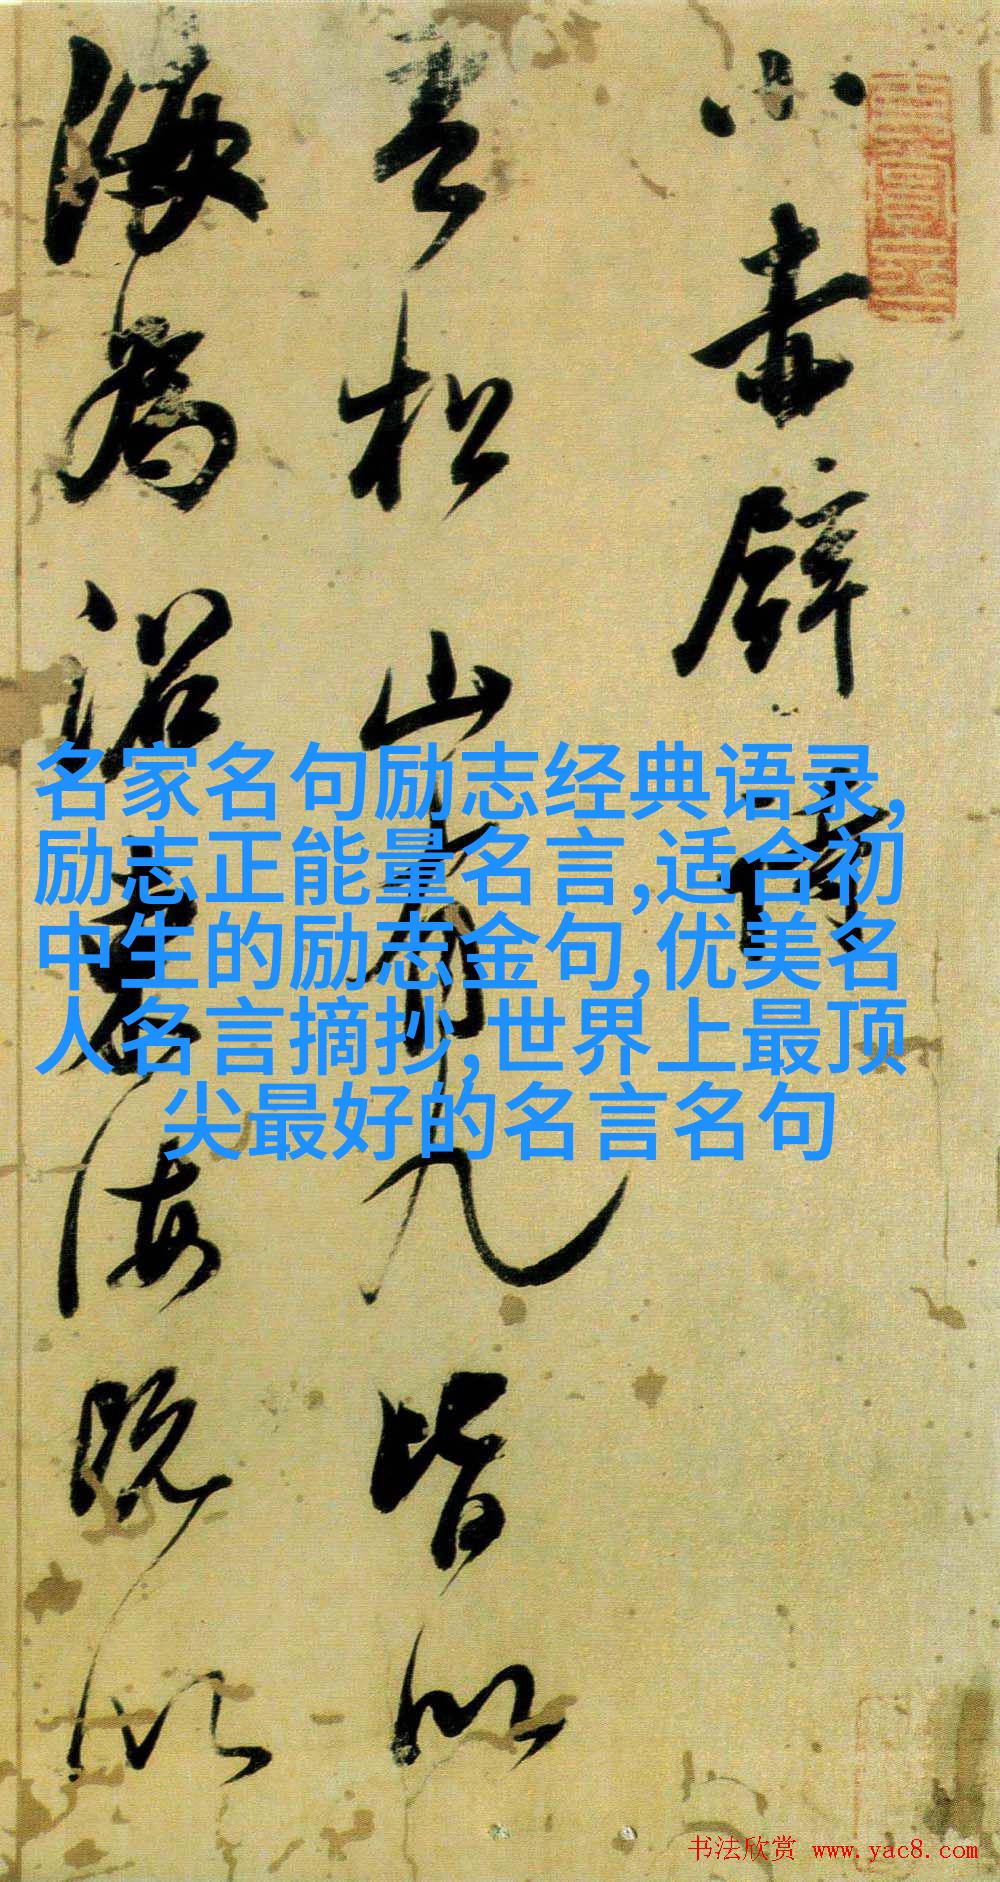 小赤壁詩
吾松山有九皆以
海為沼海既以
名家名句励志经典语录,
励志正能量名言,适合初
中生的励志金句,优美名
人名言摘抄,世界上最顶
尖最好的名言名句
书法欣赏 www.yac8.com